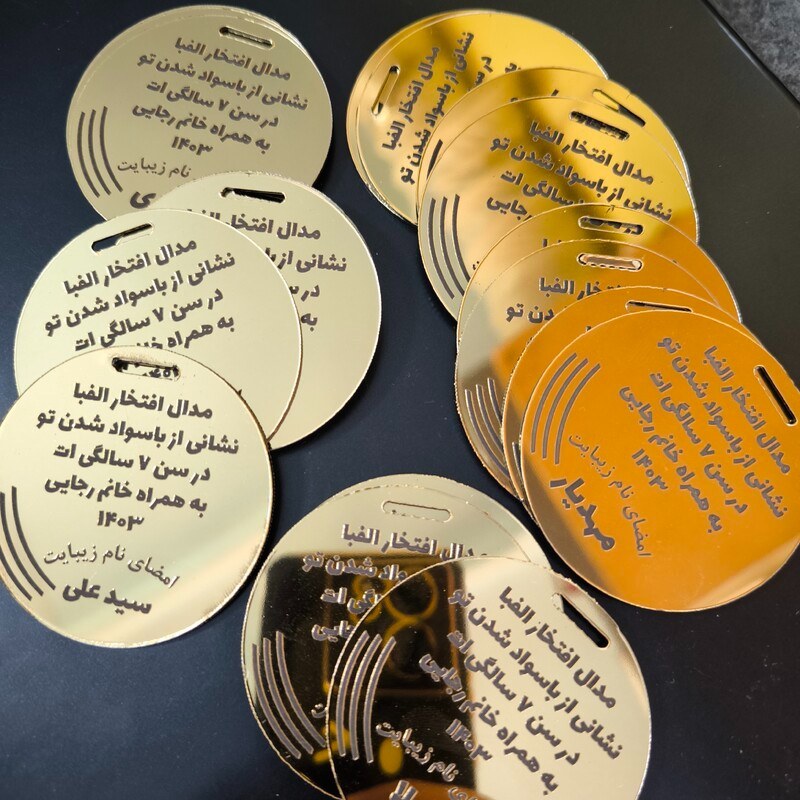 مدال افتخار الفبا
نشانی از باسواد شدن تو
در سن ۷ سالگی ات
به همراه خانم رجایی
۱۴۰۳
نام زیبایت
مدال افتخار الفبا
نشانی از باسواد شدن تو
در
به
مدال افتخار الفبا
نشانی از باسواد شدن تو
در سن ۷ سالگی ات
به همراه خانم رجایی
مدال افتخار الفبا
نشانی از باسواد شدن تو
در سن ۷ سالگی ات
به همراه خانم رجایی
۱۴۰۳
امضای نام زیبایت
سید علی
مدال افتخار الفبا
نشانی از باسواد شدن تو
در سن
مدال افتخار الفبا
نشانی از باسواد شدن تو
در سن ۷ سالگی ات
به همراه خانم رجایی
مدال افتخار الفبا
مدال افتخار الفبا
نشانی از باسواد شدن تو
در سن ۷ سالگی ات
به همراه خانم رجایی
۱۴۰۳
امضای نام زیبایت
مهدیار
مدال افتخار الفبا
شدن تو
ات
مدال افتخار الفبا
نشانی از باسواد شدن تو
در سن ۷ سالگی ات
به همراه خانم رجایی
۱۴۰۳
نام زیبایت